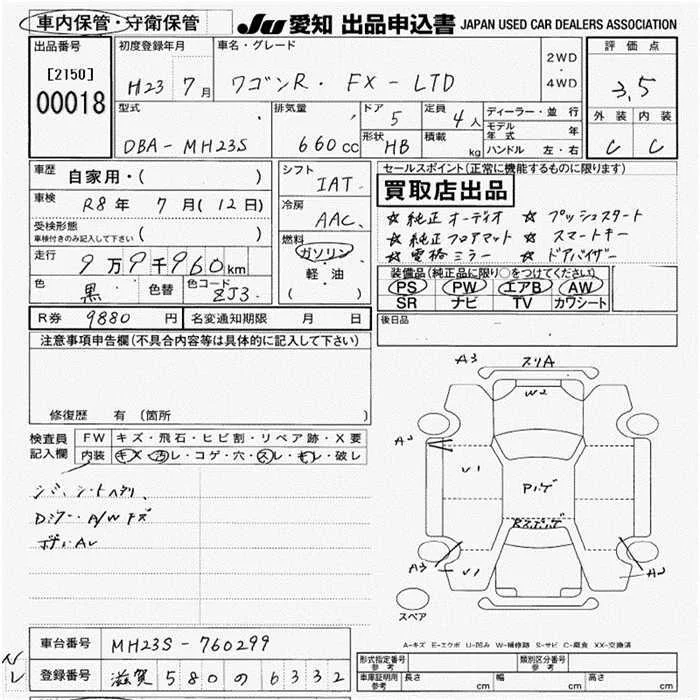 車内保管・守衛保管
JU 愛知 出品申込書 JAPAN USED CAR DEALERS ASSOCIATION
出品番号
[2150]
00018
初度登録年月
H23 7月
車名・グレード
ワゴンR・FX-LTD
2WD
・
4WD
評価点
3.5
外装 内装
C C
型式
DBA-MH23S
排気量
660cc
ドア
5
定員
4人
形状
HB
積載
kg
ディーラー・並行
モデル年式 年
ハンドル 左・右
車歴 自家用・( )
車検 R8年 7月(12日)
受検形態
車検付きのみ記入して下さい ( )
走行 9万9千960km
色 黒 色替 色コード ZJ3
シフト
IAT
冷房
AAC
燃料
ガソリン
・
軽油
( )
セールスポイント(正常に機能するものに限ります)
買取店出品
☆ 純正オーディオ ☆ プッシュスタート
☆ 純正フロアマット ☆ スマートキー
☆ 電格ミラー ☆ ドアバイザー
装備品(純正品に限り○をつけてください)
PS PW エアB AW
SR ナビ TV カワシート
R券 9880円 名変通知期限 月 日
後日品
注意事項申告欄(不具合内容等は具体的に記入して下さい)
修復歴 有 (箇所
検査員記入欄
FW キズ・飛石・ヒビ割・リペア跡・X要
内装 キズ・汚レ・コゲ・穴・スレ・モレ・破レ
A3 スリA
W2
A2
U1
Pハゲ
Rスポハゲ
A3
U1
A2
スペア
A-キズ E-エクボ U-凹み W-補修跡 S-サビ C-腐食 XX-交換済
車台番号 MH23S-760299
登録番号 滋賀 580 の 6332
形式指定番号 参考
類別区分番号 参考
車庫証明用 参考 長さ cm 幅 cm 高さ cm